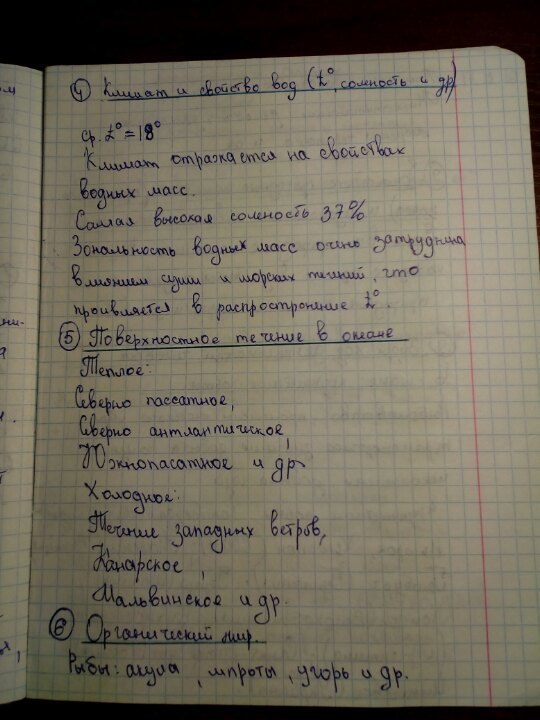 4 Климат и свойство вод (t°, солность и др)
ср. t° = 18°
Климат отражается на свойствах
водных масс.
Самая высокая солность 37%
Зональность водных масс очень затруднина
влиянием суши и морских течений, что
проивляется в распростронение t°.
5 Поверхностное течение в океане
Теплое:
Северно пассатное,
Северно антлантическое,
Южнопасатное и др
Холодное:
Течение западных ветров,
Канарское,
Мальвинское и др.
6 Органический мир.
Рыбы: акула, шпроты, угорь и др.